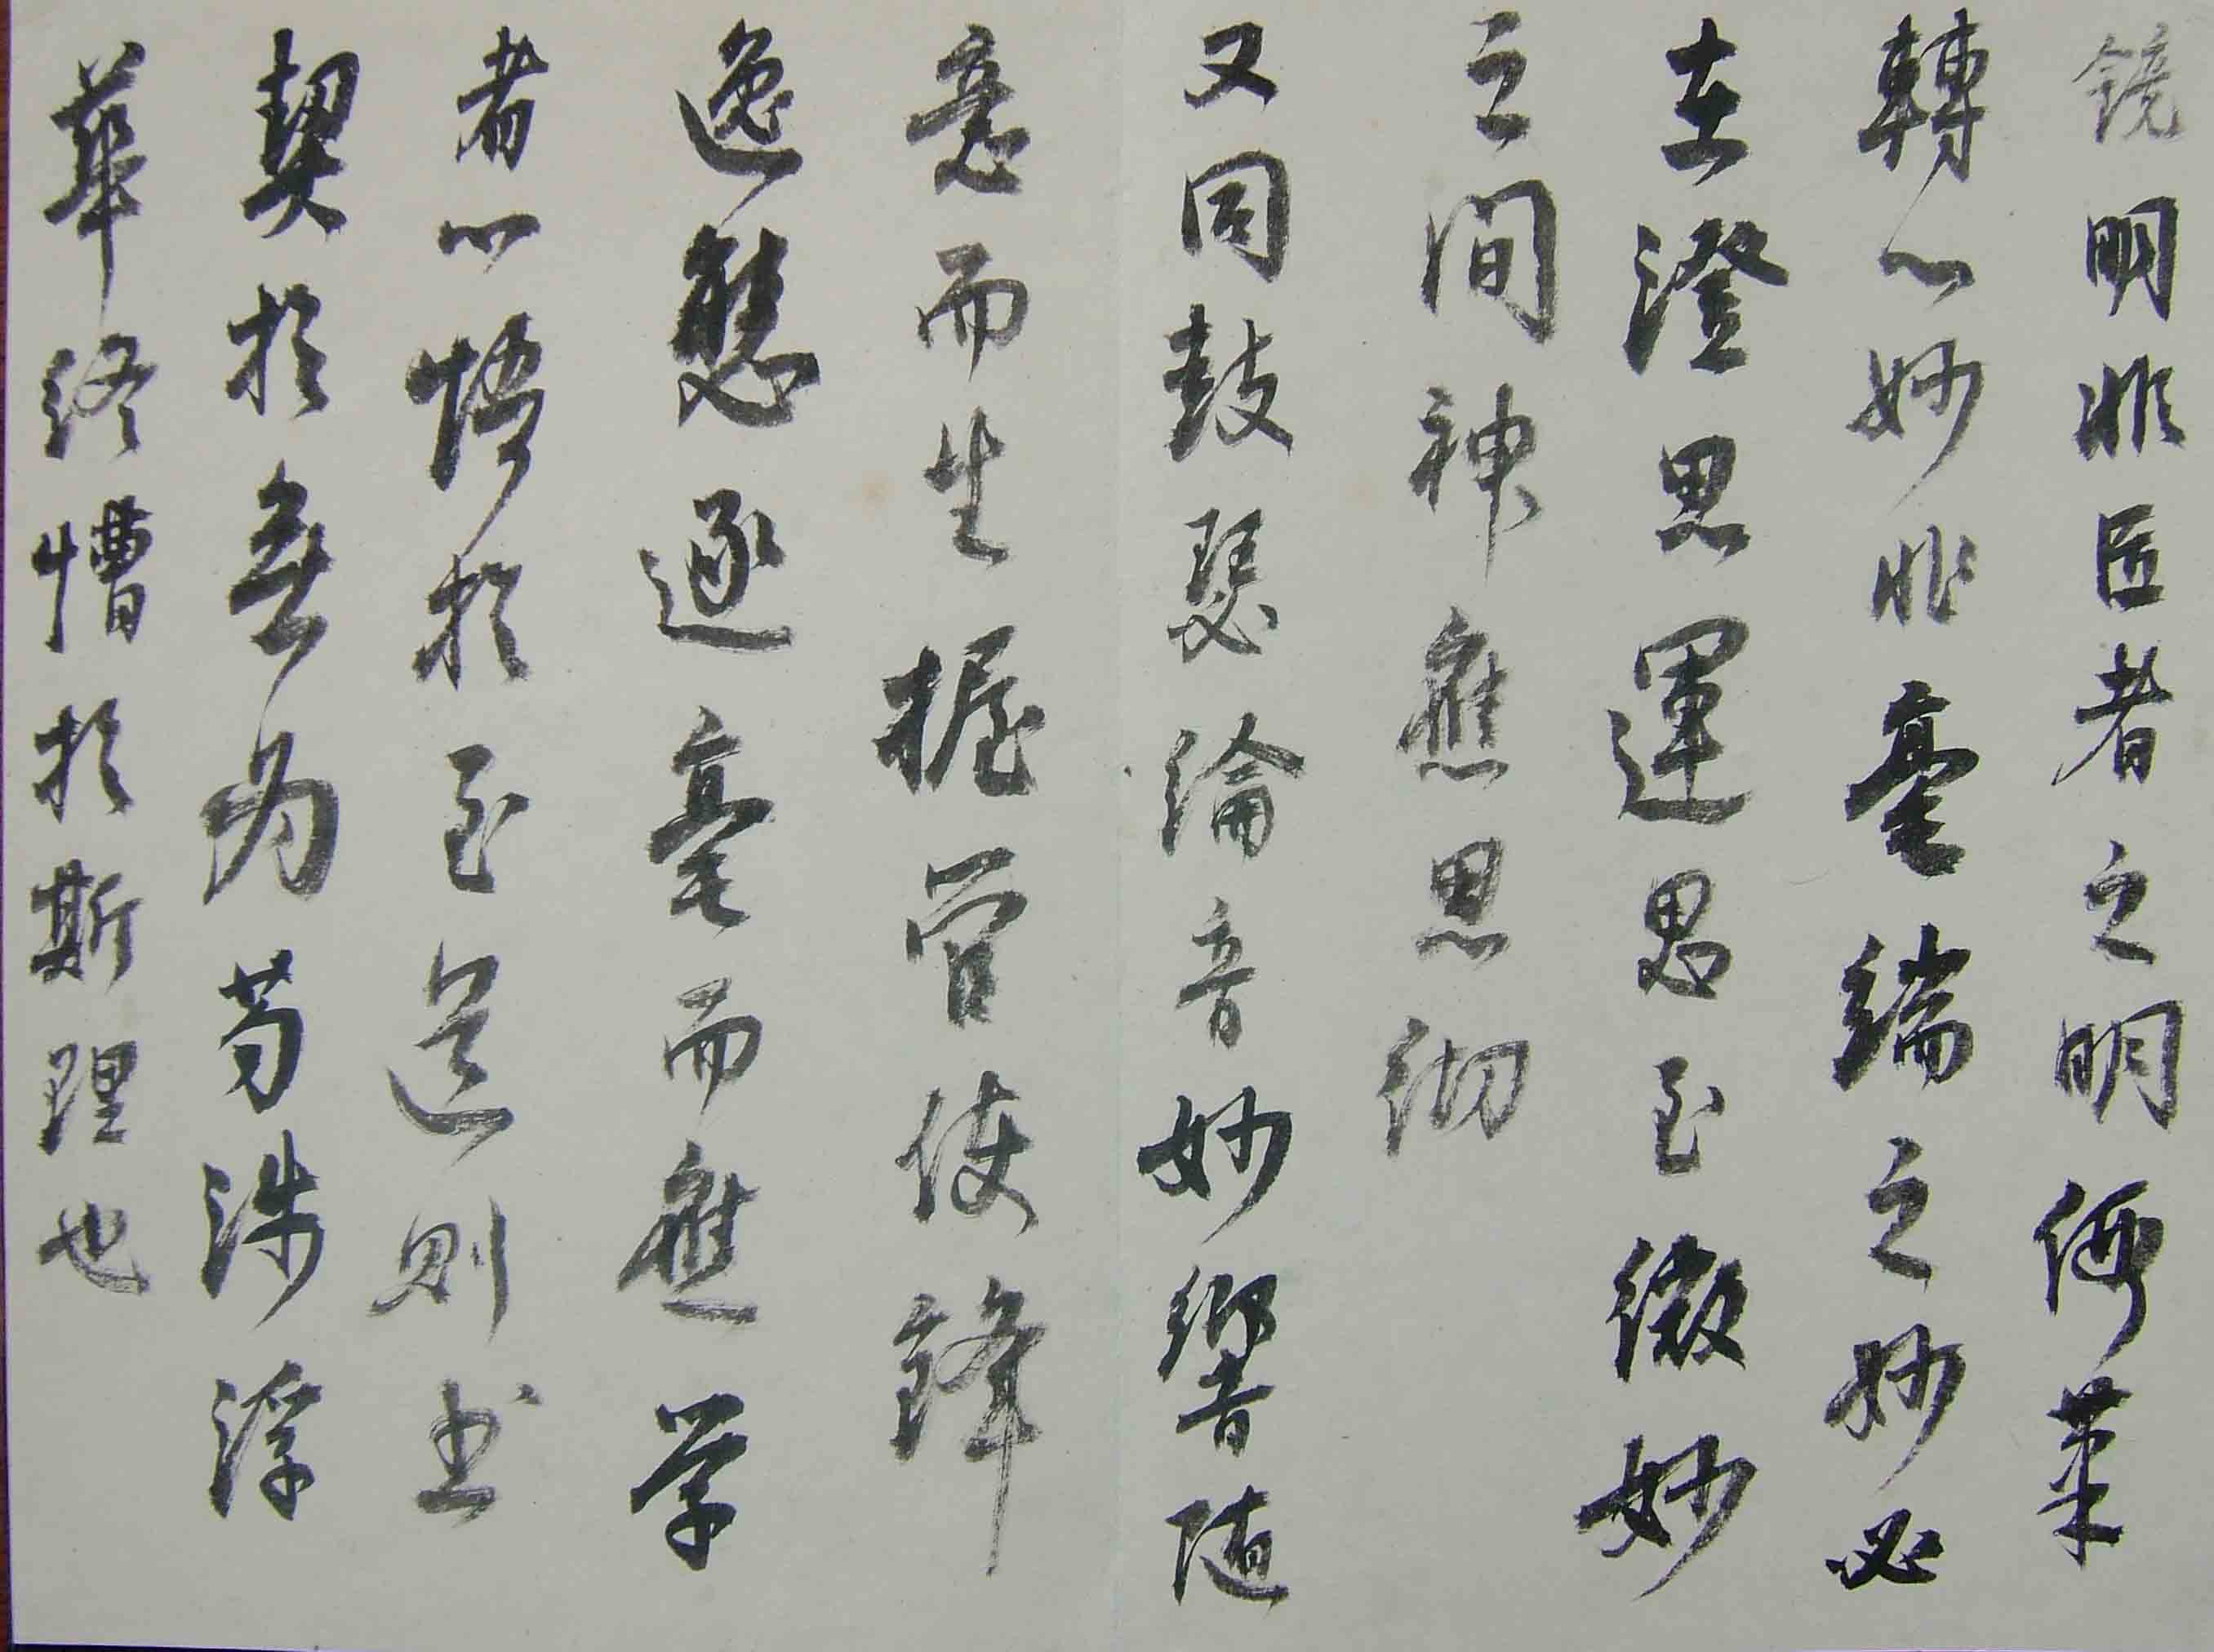 镜明非匠者之明假筆
轉心妙非毫端之妙必
在澄思運思至微妙
之間神應思彻
又同鼓瑟綸音妙響随
意而生握管使鋒
逸態逐毫而應学
者心悟於至道則書
契於無為苟涉浮
華終懵於斯理也